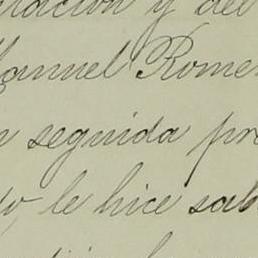 ración y del
Manuel Romer
n seguida pr
o, le hice sab